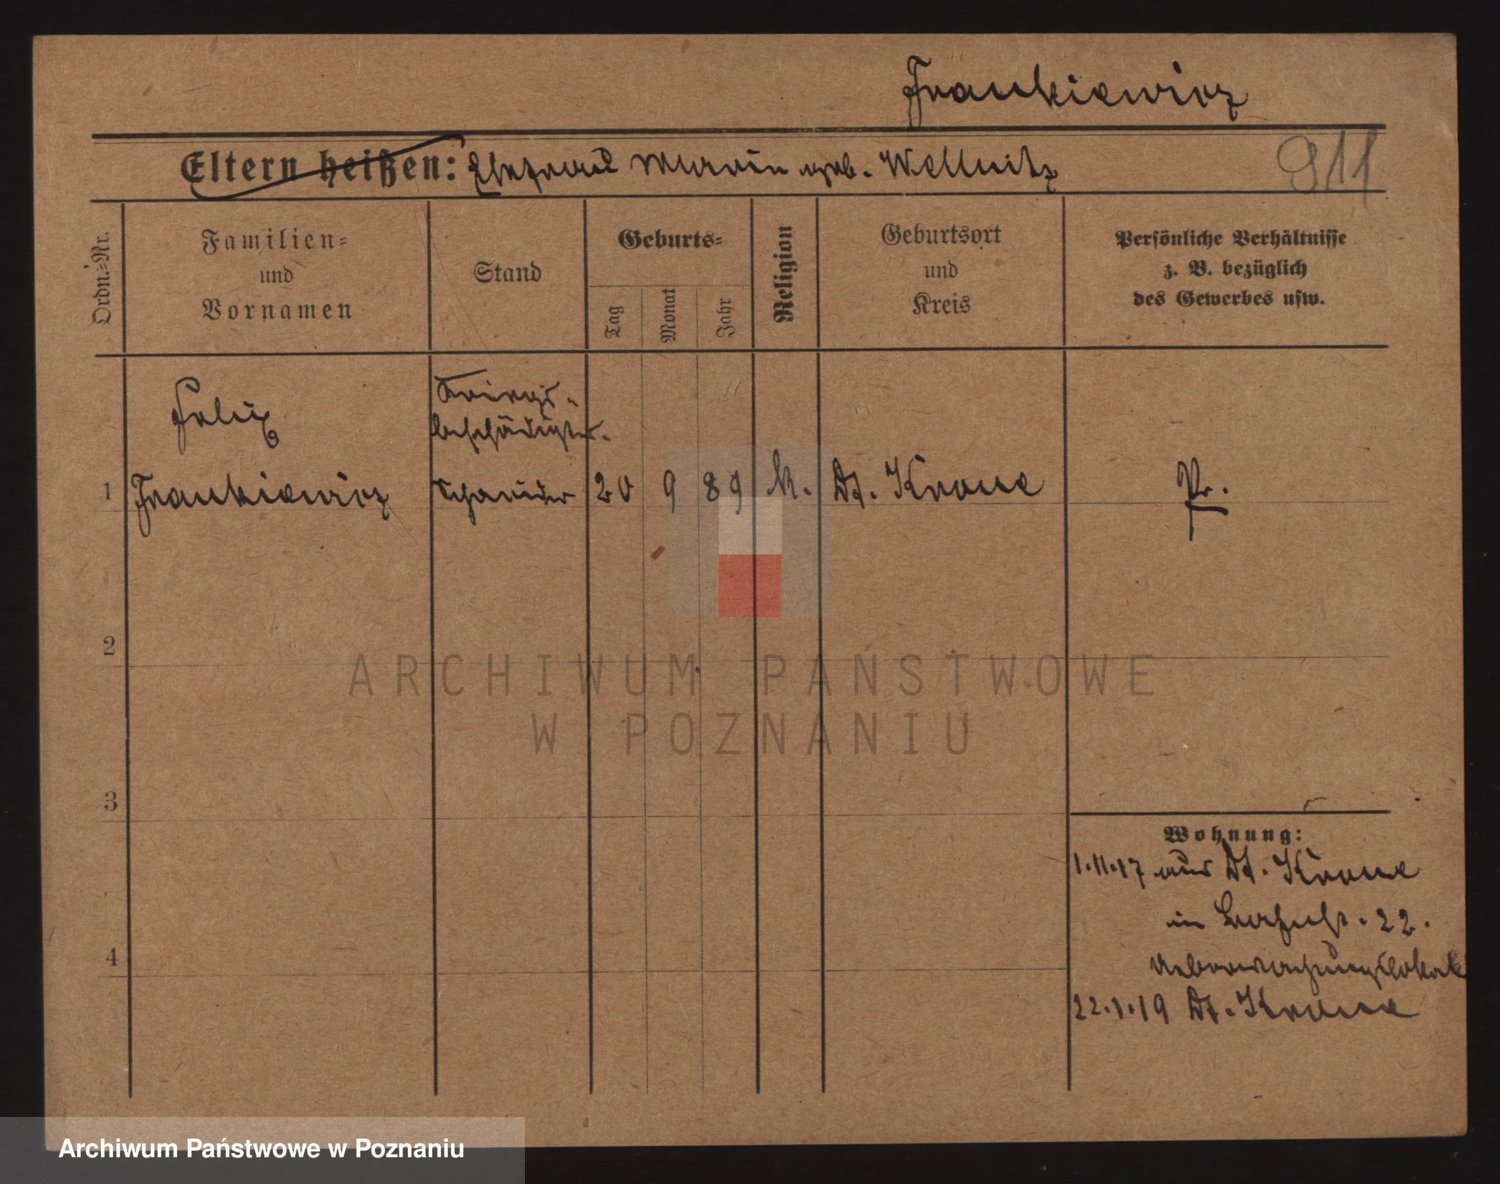 Frankiewicz
911
Eltern heißen: Ehefrau Maria geb. Wellnitz
Ordn.-Nr.
Familien-
und
Vornamen
Stand
Geburts-
Tag
Monat
Jahr
Religion
Geburtsort
und
Kreis
Persönliche Verhältnisse
z. B. bezüglich
des Gewerbes usw.
Felix
Kriegs-
beschädigter.
1 Frankiewicz Schneider 20 9 89 k. Dt. Krone Pr.
2
ARCHIWUM PAŃSTWOWE
W POZNANIU
3
Wohnung:
1.11.17 aus Dt. Krone
in 22.
4
Ueberwachungslokal
22.1.19 Dt. Krone
Archiwum Państwowe w Poznaniu